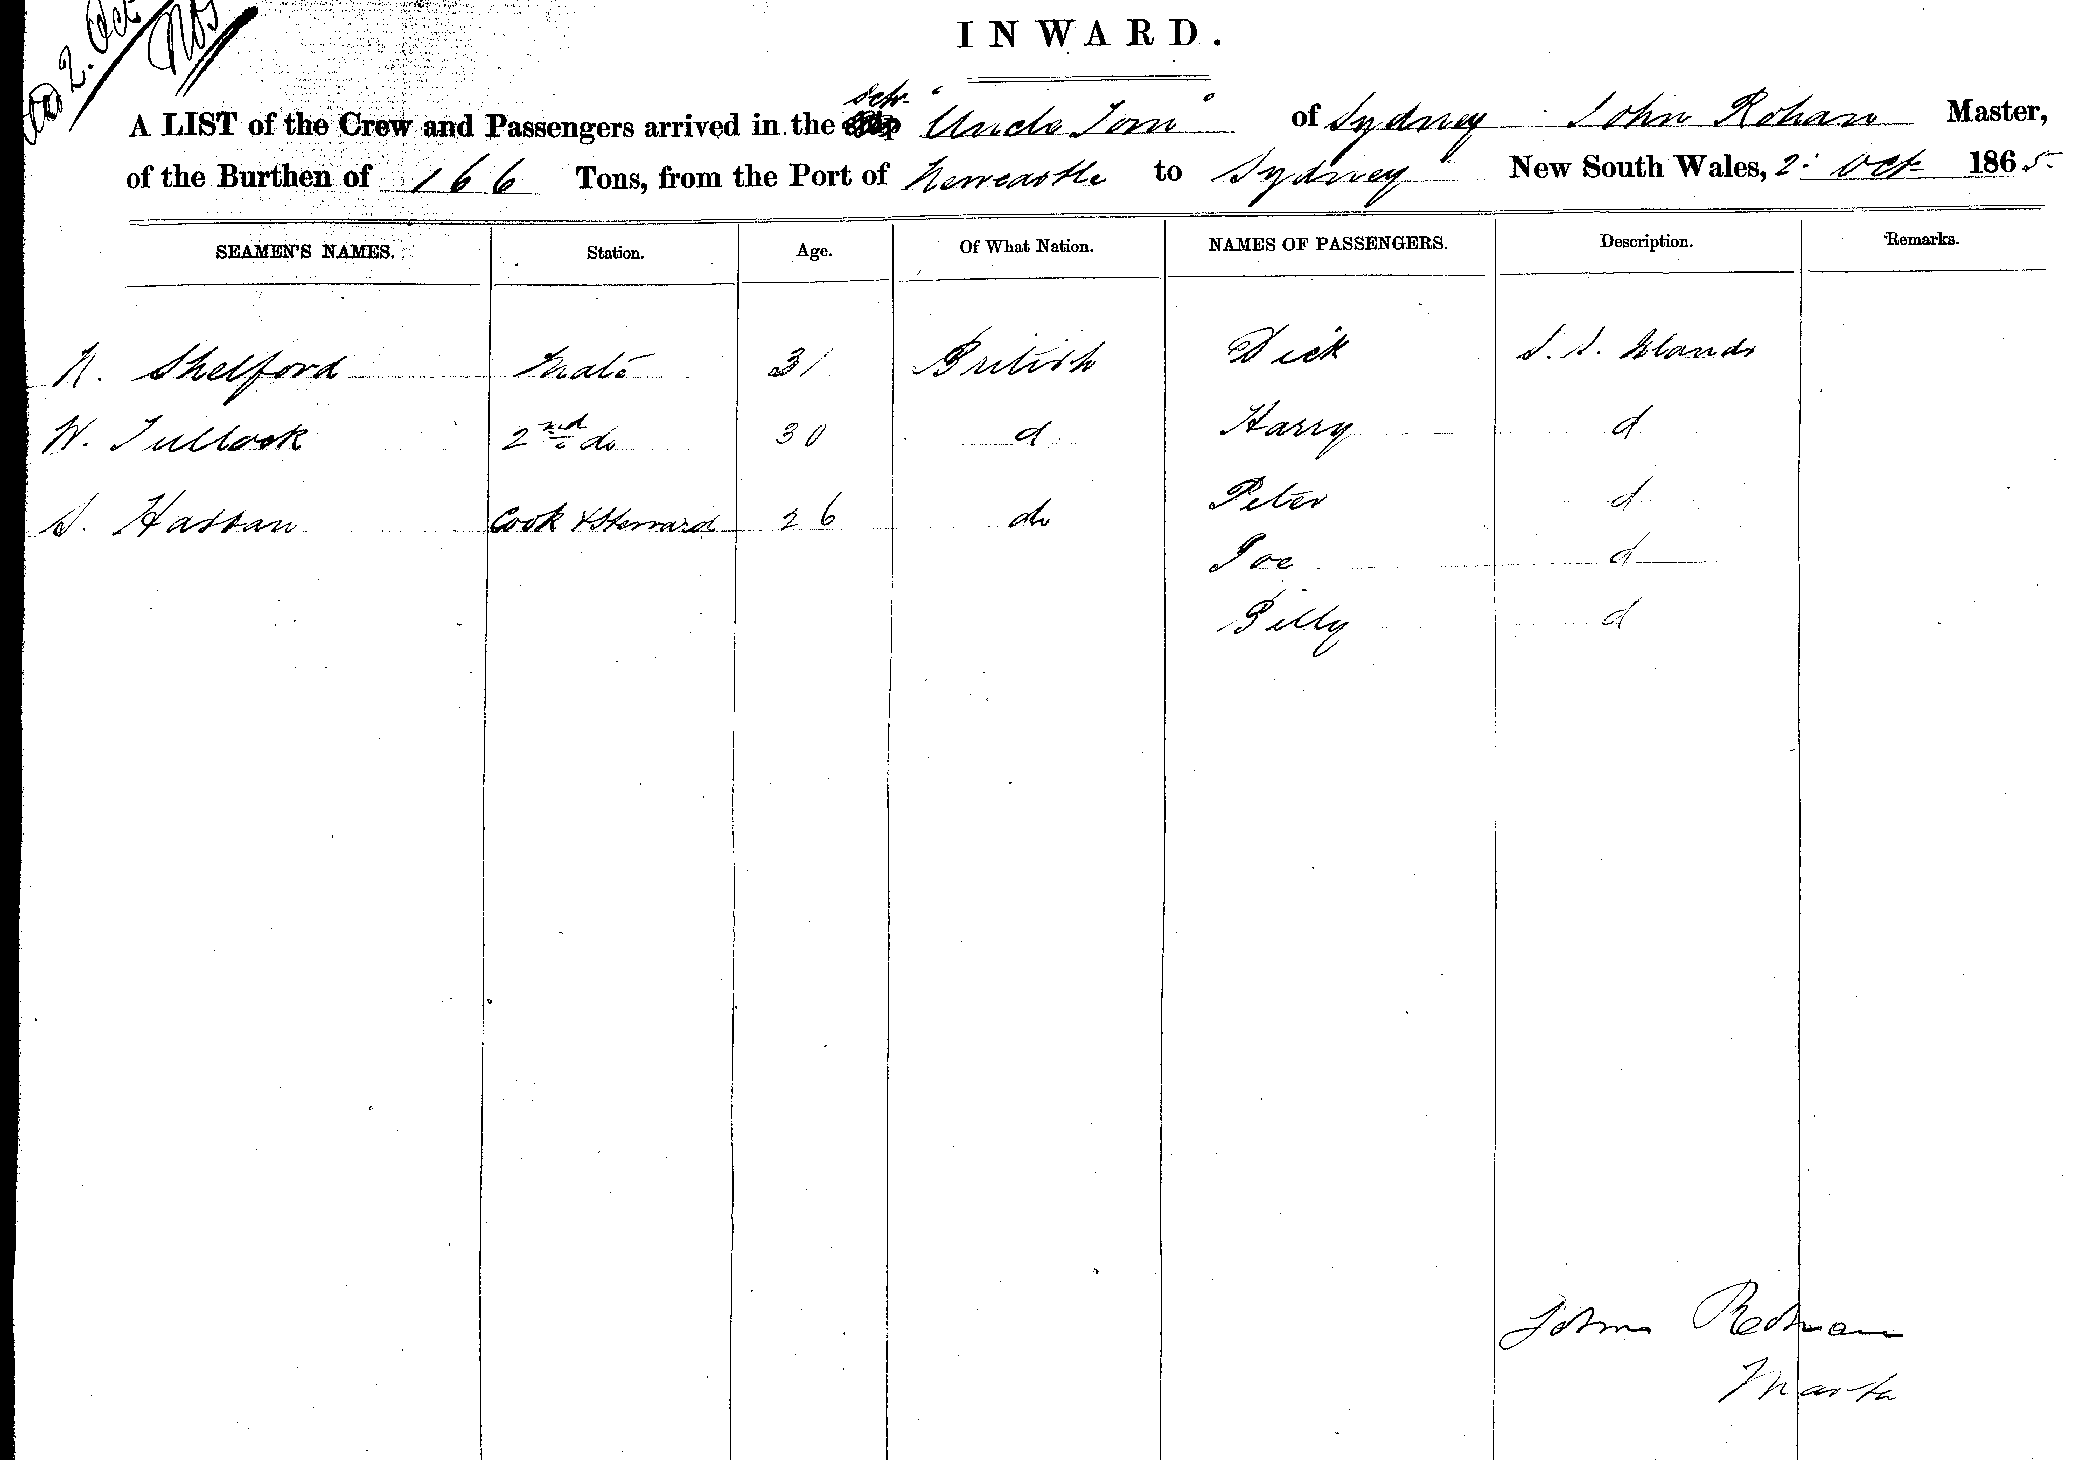 2. Oct
INWARD.
Schr
A LIST of the Crew and Passengers arrived in the Ship "Uncle Tom" of Sydney John Rohan Master,
of the Burthen of 166 Tons, from the Port of Newcastle to Sydney New South Wales, 2 Oct 1865.
SEAMEN'S NAMES. Station. Age. Of What Nation. NAMES OF PASSENGERS. Description. Remarks.
N. Shelford Mate 31 British Dick S. S. Islands
W. Tullock 2nd do 30 d Harry d
S. Hassan Cook & Steward 26 do Peter d
Joe d
Billy d
John Rohan
Master